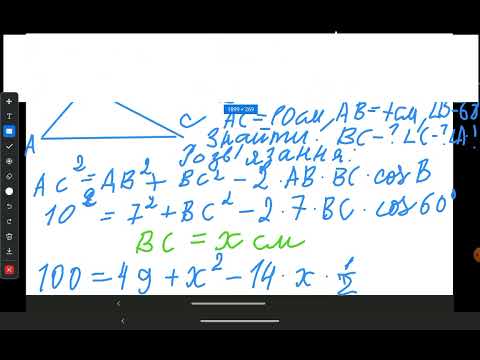 1899 × 269
AC = 10 см, AB = 7 см, ∠B = 60
A C Знайти: BC - ? ∠C - ? ∠A - ?
Розв'язання:
AC² = AB² + BC² - 2 · AB · BC · cos B
10² = 7² + BC² - 2 · 7 · BC · cos 60°
BC = x см
100 = 49 + x² - 14 · x · 1/2